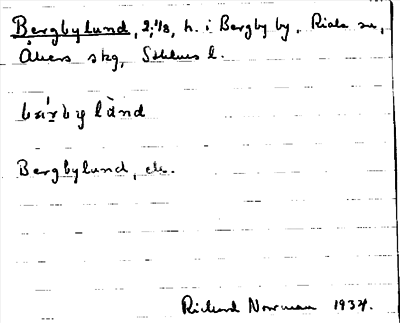 Bergbylund, 2;1/8, h. i Bergby by, Riala sn,
Åkers skg, Sthlms l.
Bergbylund, etc.
Richard Norrman 1934.